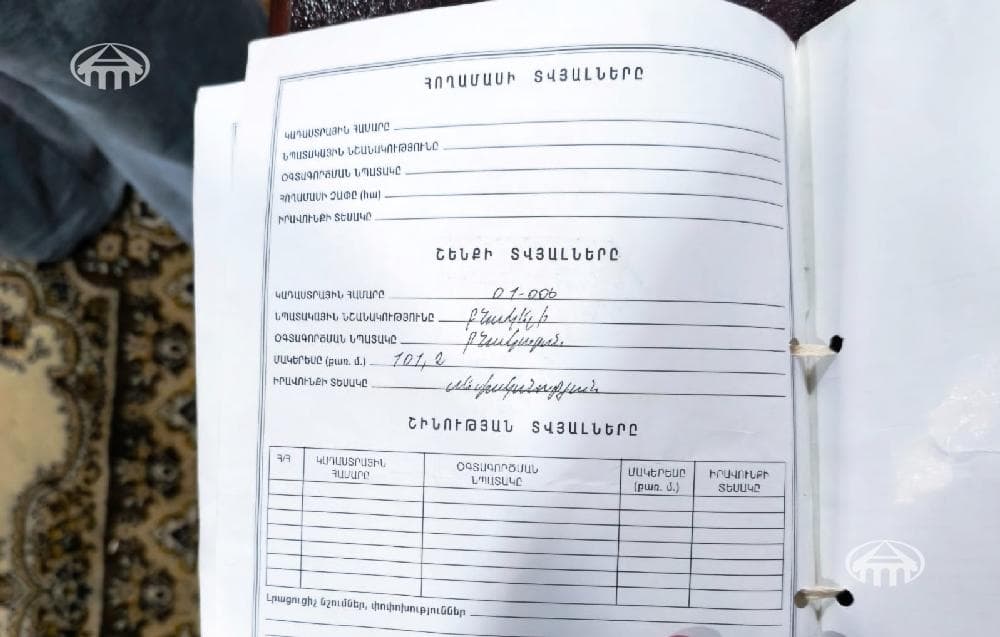 ՀՈՂԱՄԱՍԻ ՏՎՅԱԼՆԵՐԸ
ԿԱԴԱՍՏՐԱՅԻՆ ՀԱՄԱՐԸ
ՆՊԱՏԱԿԱՅԻՆ ՆՇԱՆԱԿՈՒԹՅՈՒՆԸ
ՕԳՏԱԳՈՐԾՄԱՆ ՆՊԱՏԱԿԸ
ՀՈՂԱՄԱՍԻ ՉԱՓԸ (հա)
ԻՐԱՎՈՒՆՔԻ ՏԵՍԱԿԸ
ՇԵՆՔԻ ՏՎՅԱԼՆԵՐԸ
ԿԱԴԱՍՏՐԱՅԻՆ ՀԱՄԱՐԸ 01-006
ՆՊԱՏԱԿԱՅԻՆ ՆՇԱՆԱԿՈՒԹՅՈՒՆԸ բնակելի
ՕԳՏԱԳՈՐԾՄԱՆ ՆՊԱՏԱԿԸ բնակության
ՄԱԿԵՐԵՍԸ (քառ. մ.) 101,2
ԻՐԱՎՈՒՆՔԻ ՏԵՍԱԿԸ սեփականության
ՇԻՆՈՒԹՅԱՆ ՏՎՅԱԼՆԵՐԸ
Հ/Հ ԿԱԴԱՍՏՐԱՅԻՆ ՀԱՄԱՐԸ ՕԳՏԱԳՈՐԾՄԱՆ ՆՊԱՏԱԿԸ ՄԱԿԵՐԵՍԸ (քառ. մ.) ԻՐԱՎՈՒՆՔԻ ՏԵՍԱԿԸ
Լրացուցիչ նշումներ, փոփոխություններ